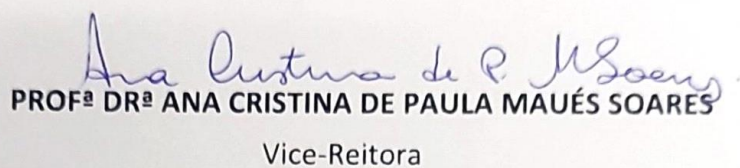 Ana Cristina de P. M Soares
PROFª DRª ANA CRISTINA DE PAULA MAUÉS SOARES
Vice-Reitora